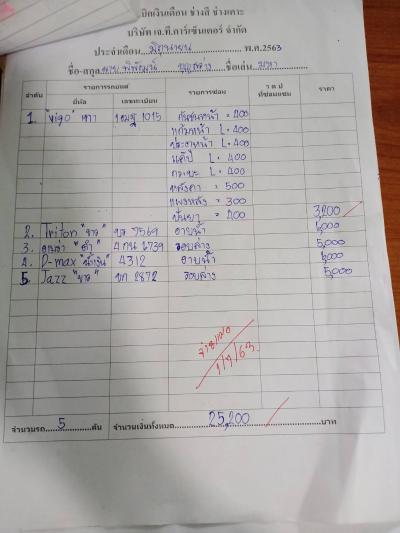 เบิกเงินเดือน ช่างสี ช่างเคาะ
บริษัท เจ.ที.คาร์เซ็นเตอร์ จำกัด
ประจำเดือน มิถุนายน พ.ศ.2563
ชื่อ-สกุล นาย พิพัฒน์ ชื่อเล่น
ลำดับ รายการรถยนต์ รายการซ่อม ราคา
ยี่ห้อ เลขทะเบียน
1. "vigo" เทา 1015 กันชนหน้า = 400
แก้มหน้า L = 400
ประตูหน้า L = 400
แค๊ป L = 400
กระบะ L = 400
หลังคา = 500
แผงหลัง = 300
= 400 3,200
2. Triton "ขาว" 7569 อาบน้ำ
3. "ดำ" 4 กน 2739 รอบล่าง 5,000
4. D-max "น้ำเงิน" 4312 อาบน้ำ
5. Jazz "ขาว" 2872 รอบล่าง 5,000
จ่ายแล้ว
1/7/63
จำนวนรถ 5 คัน จำนวนเงินทั้งหมด 25,200 บาท